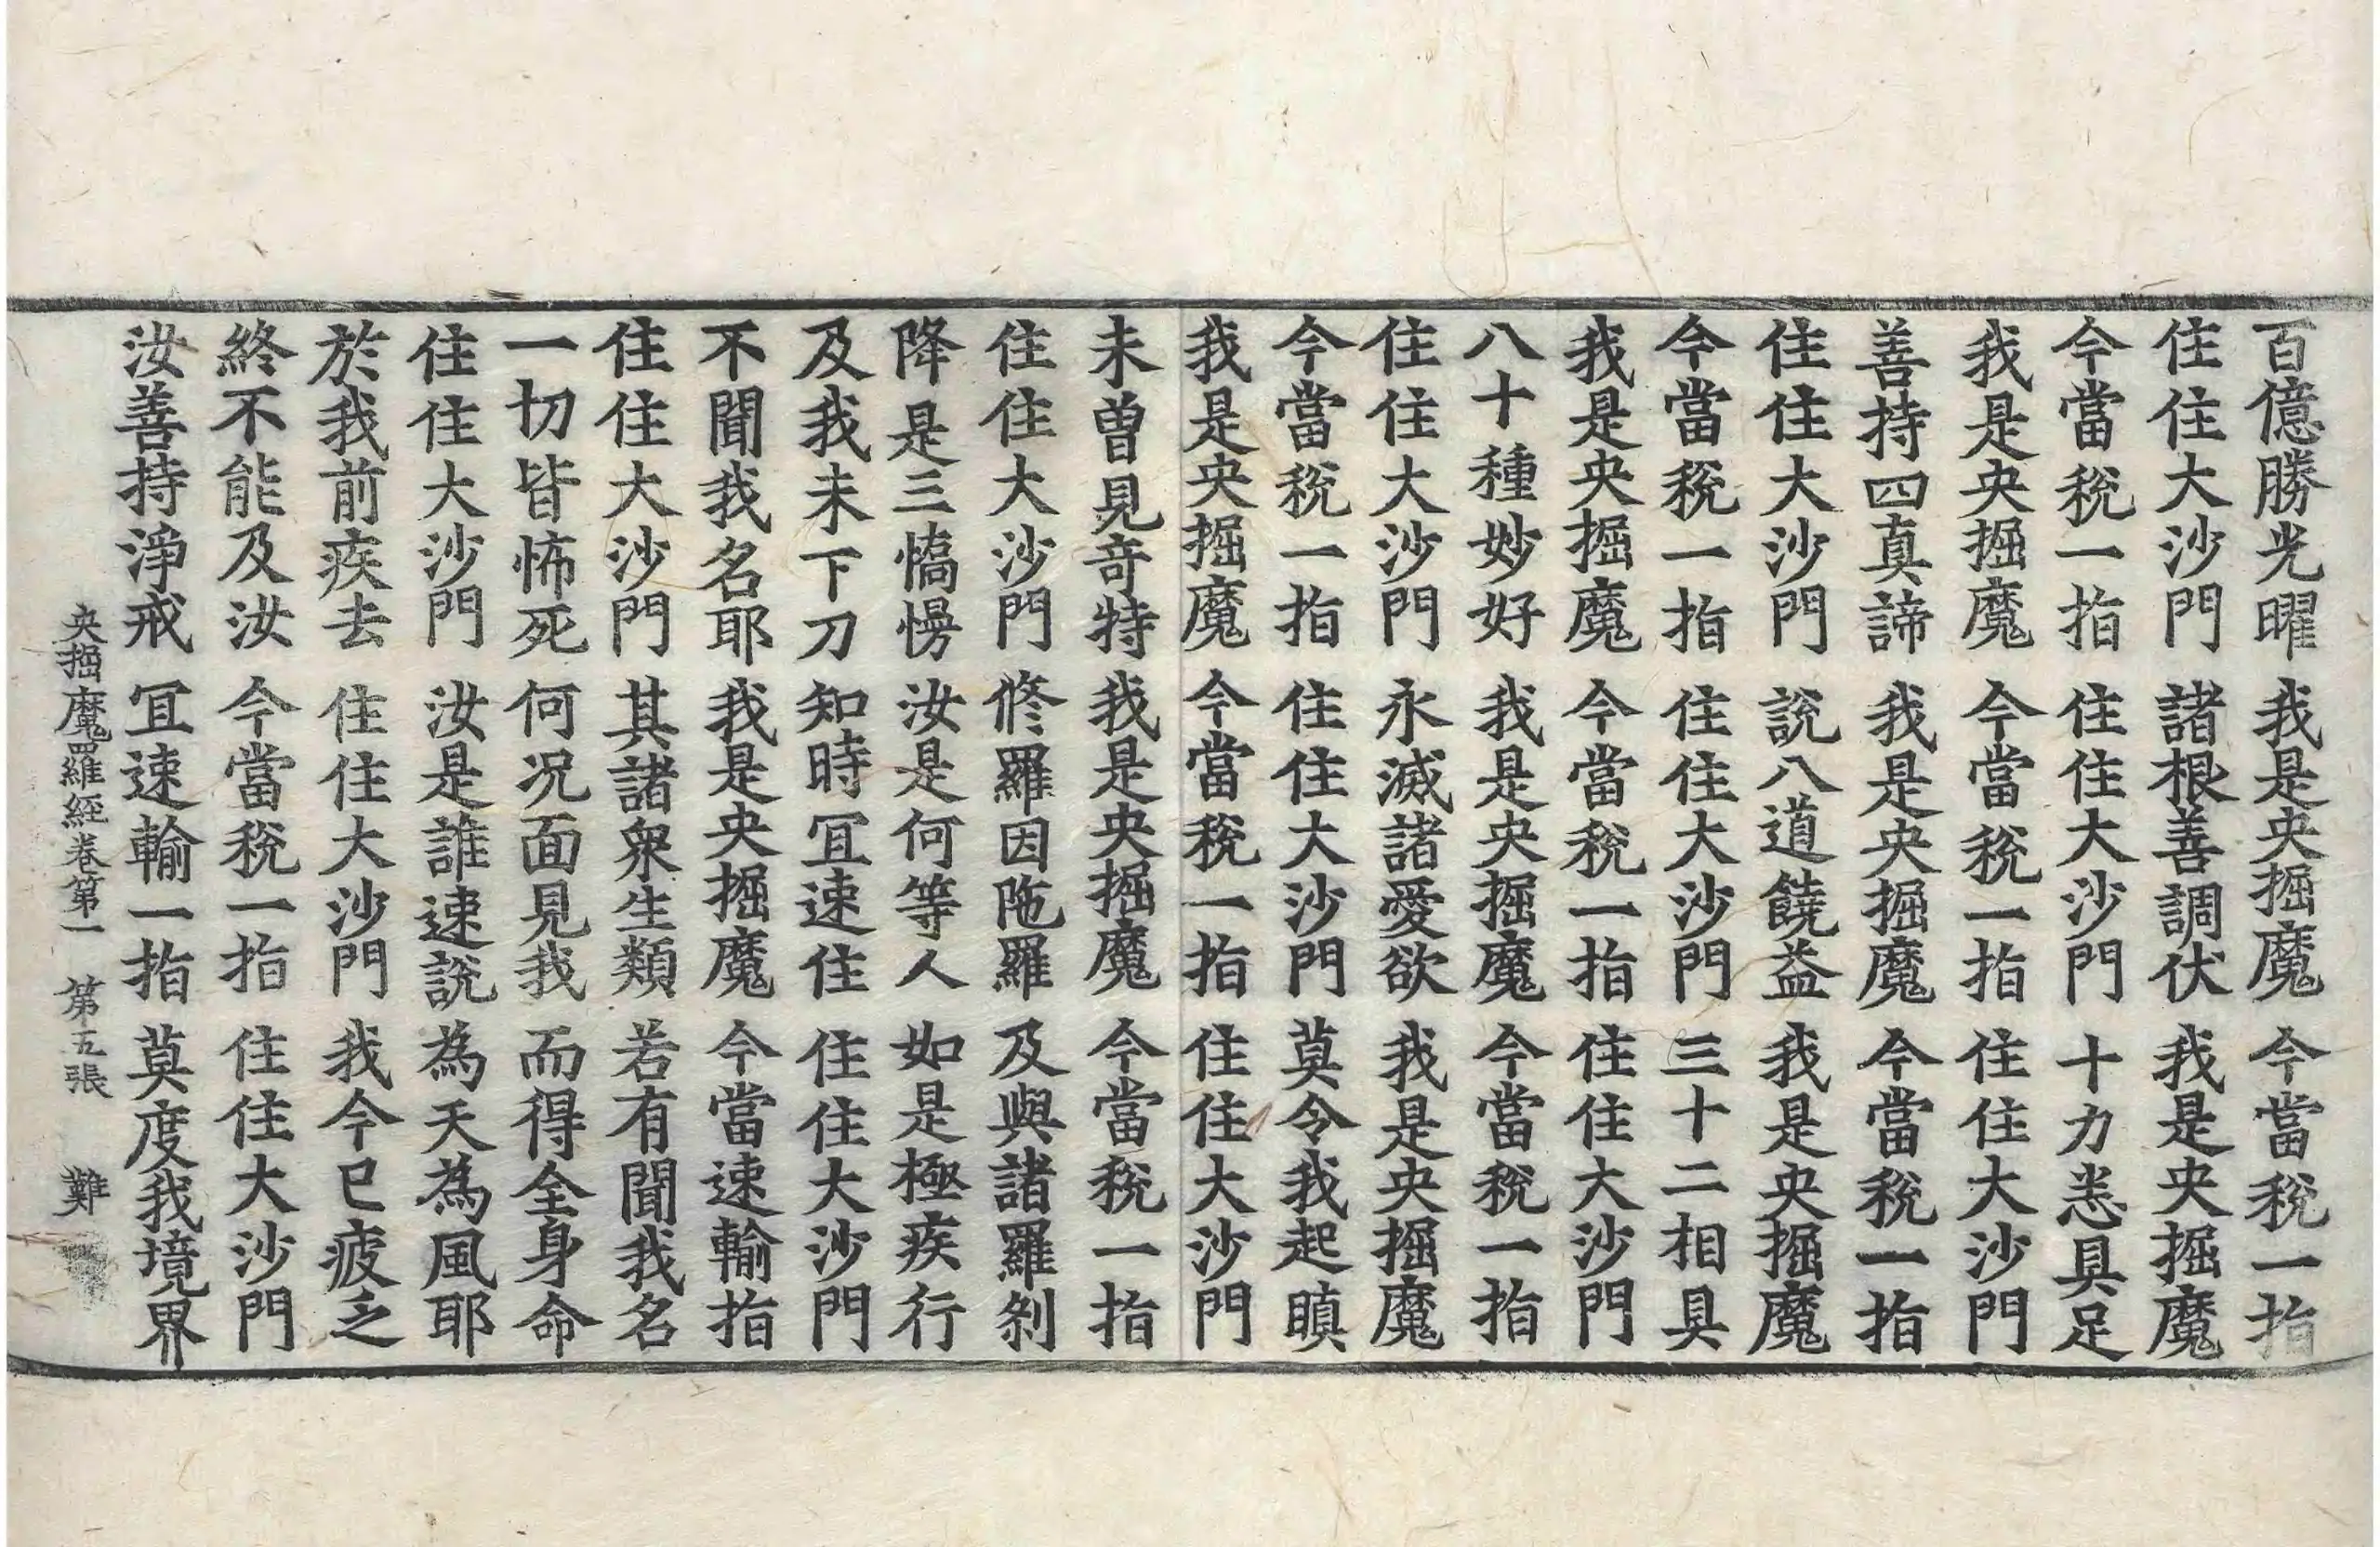 百億勝光曜 我是央掘魔 今當稅一指
住住大沙門 諸根善調伏 我是央掘魔
今當稅一指 住住大沙門 十力悉具足
我是央掘魔 今當稅一指 住住大沙門
善持四真諦 我是央掘魔 今當稅一指
住住大沙門 說八道饒益 我是央掘魔
今當稅一指 住住大沙門 三十二相具
我是央掘魔 今當稅一指 住住大沙門
八十種妙好 我是央掘魔 今當稅一指
住住大沙門 永滅諸愛欲 我是央掘魔
今當稅一指 住住大沙門 莫令我起瞋
我是央掘魔 今當稅一指 住住大沙門
未曾見奇特 我是央掘魔 今當稅一指
住住大沙門 修羅因陁羅 及與諸羅剎
降是三憍慢 汝是何等人 如是極疾行
及我未下刀 知時冝速住 住住大沙門
不聞我名耶 我是央掘魔 今當速輸指
住住大沙門 其諸衆生類 若有聞我名
一切皆怖死 何况面見我 而得全身命
住住大沙門 汝是誰速說 為天為風耶
於我前疾去 住住大沙門 我今已疲乏
終不能及汝 今當稅一指 住住大沙門
汝善持淨戒 冝速輸一指 莫度我境界
央掘魔羅經卷第一 第五張 難